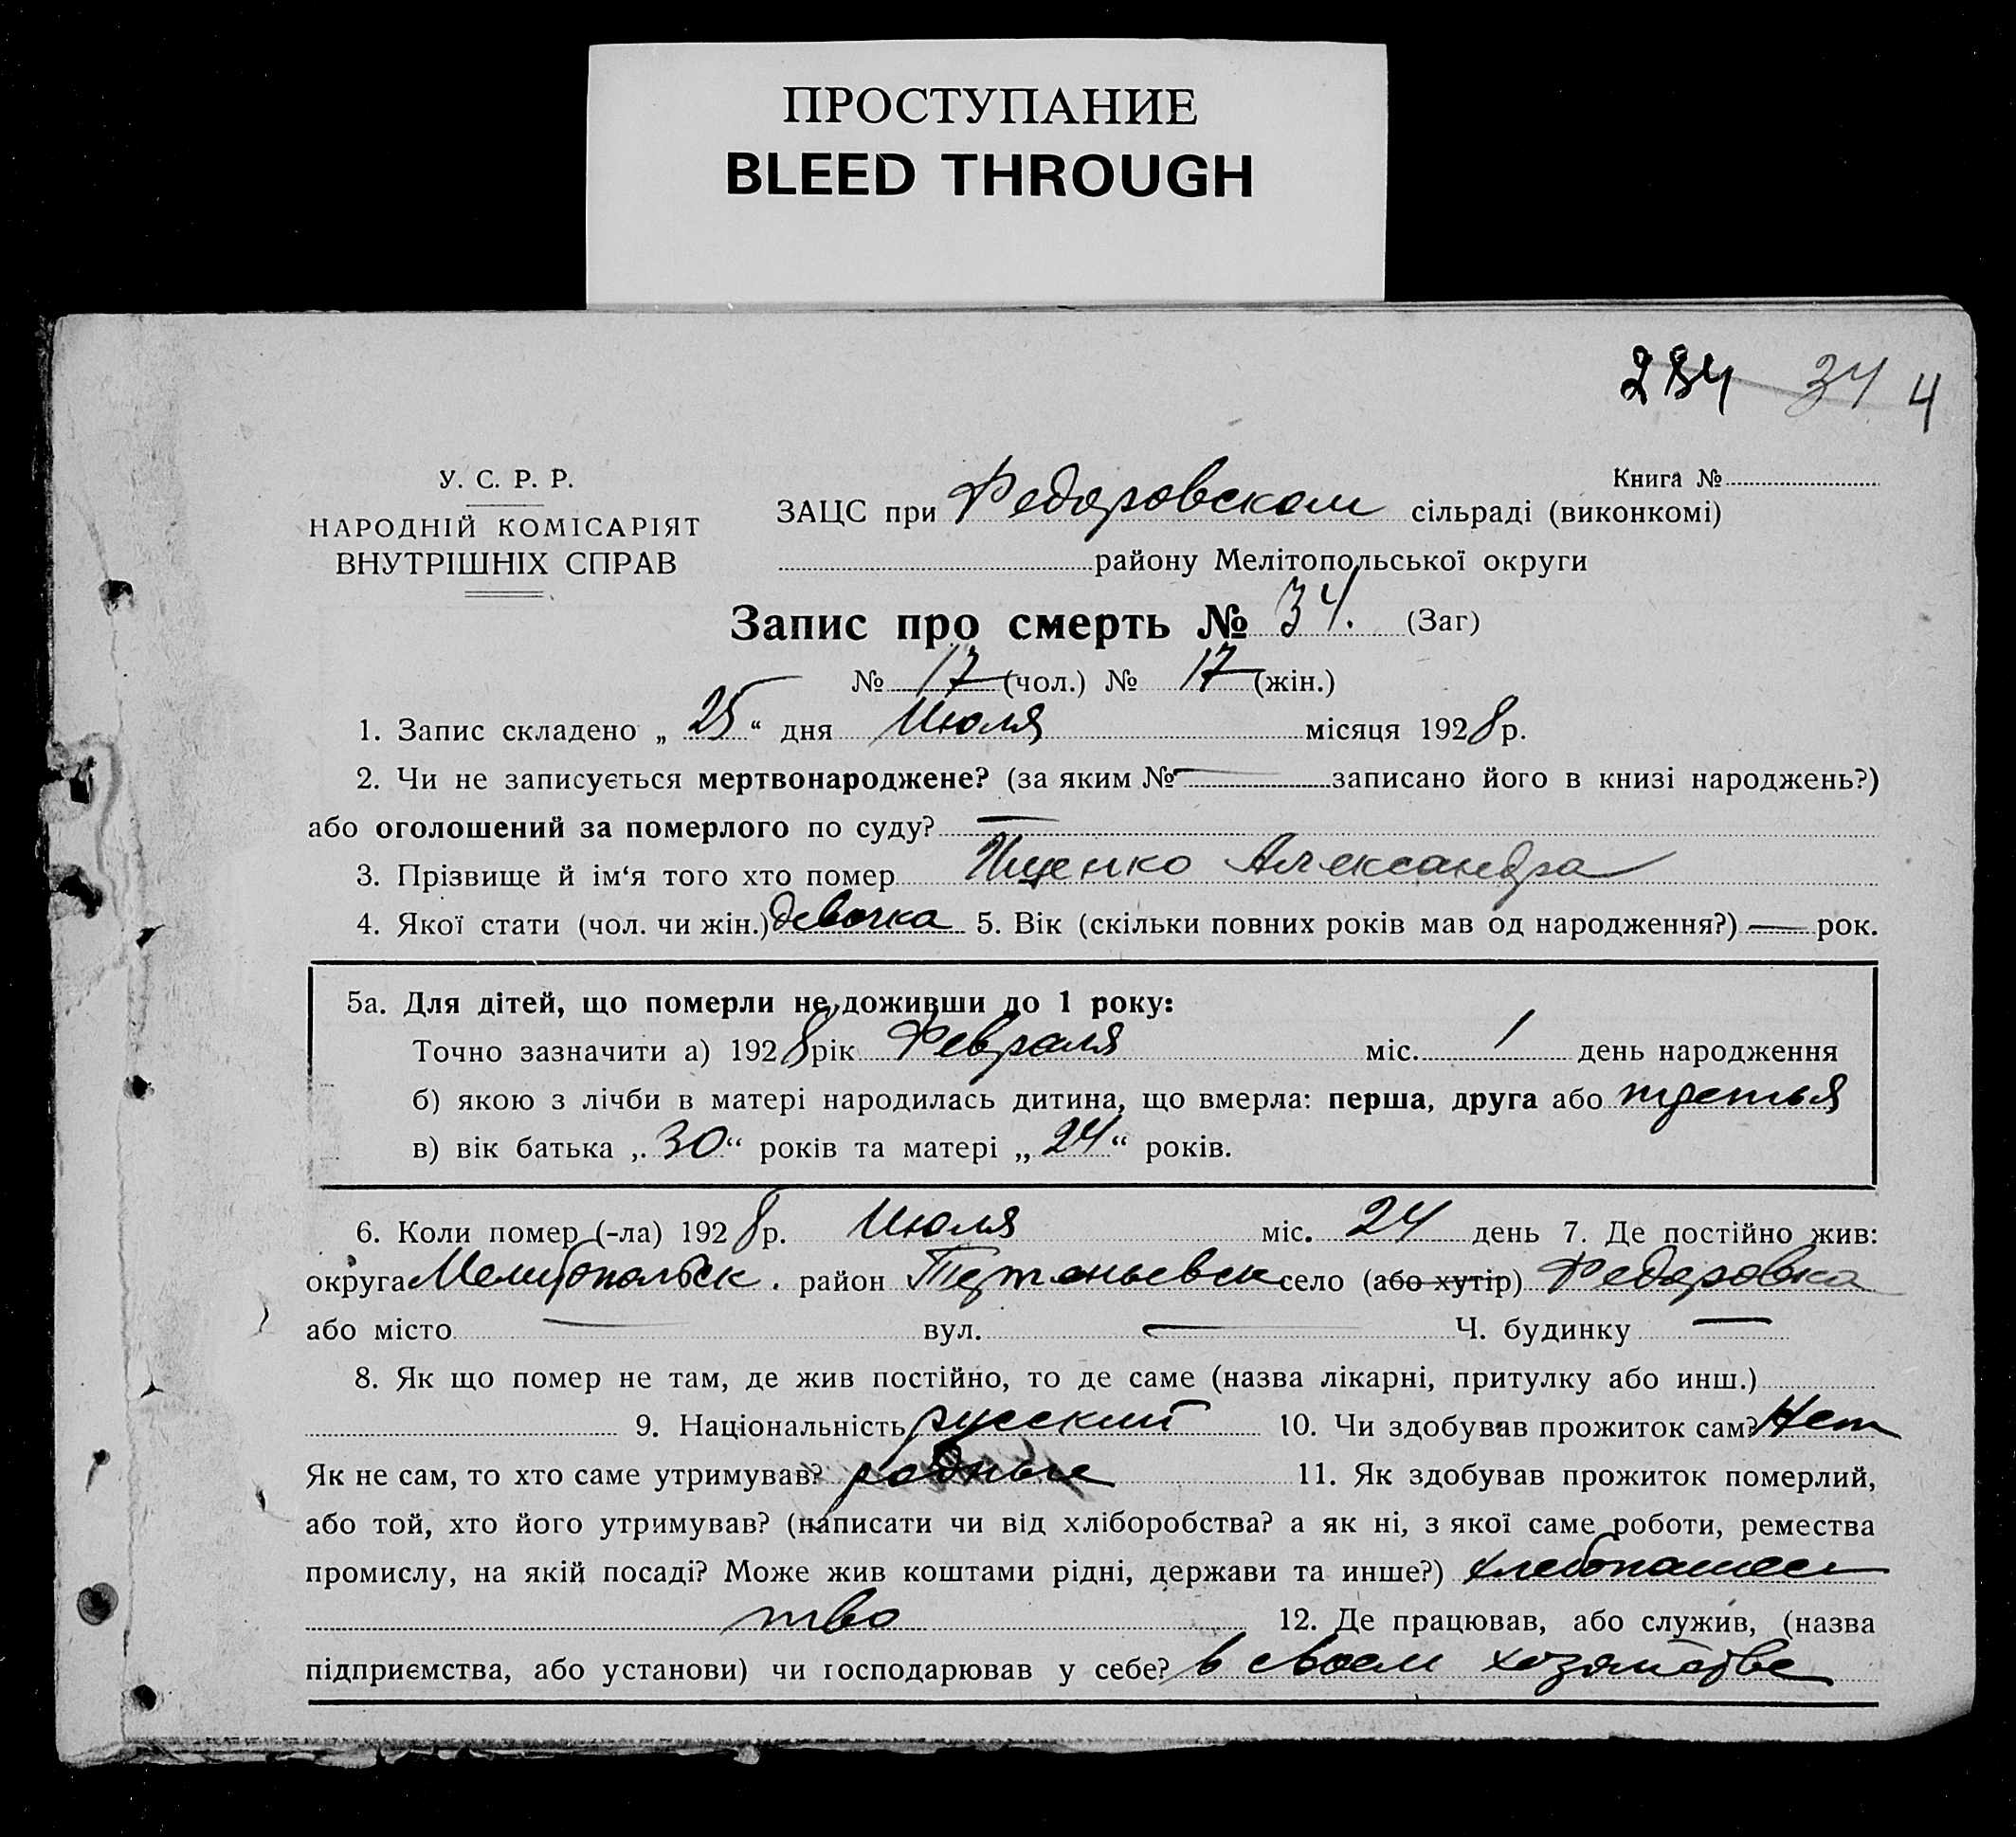 ПРОСТУПАНИЕ
BLEED THROUGH
284 34 4
Книга №
У. С. Р. Р.
НАРОДНІЙ КОМІСАРІЯТ
ВНУТРІШНІХ СПРАВ
ЗАЦС при Федоровском сільраді (виконкомі)
району Мелітопольської округи
Запис про смерть № 34. (Заг)
№ 17 (чол.) № 17 (жін.)
1. Запис складено „ 25 “ дня Июля місяця 1928 р.
2. Чи не записується мертвонароджене? (за яким № — записано його в книзі народжень?)
або оголошений за померлого по суду? —
3. Прізвище й ім‘я того хто помер Ищенко Александра
4. Якої стати (чол. чи жін.) девочка 5. Вік (скільки повних років мав од народження?) — рок.
5а. Для дітей, що померли не доживши до 1 року:
Точно зазначити а) 1928 рік Февраля міс. 1 день народження
б) якою з лічби в матері народилась дитина, що вмерла: перша, друга або третья
в) вік батька „ 30 “ років та матері „ 24 “ років.
6. Коли помер (-ла) 1928 р. Июля міс. 24 день 7. Де постійно жив:
округа Мелитопольск. район село (або хутір) Федоровка
або місто — вул. — Ч. будинку —
8. Як що помер не там, де жив постійно, то де саме (назва лікарні, притулку або инш.)
9. Національність русский 10. Чи здобував прожиток сам? Нет
Як не сам, то хто саме утримував? родные 11. Як здобував прожиток померлий,
або той, хто його утримував? (написати чи від хліборобства? а як ні, з якої саме роботи, ремества
промислу, на якій посаді? Може жив коштами рідні, держави та инше?) хлебопашес
тво 12. Де працював, або служив, (назва
підприємства, або установи) чи господарював у себе? в своем хозяйстве